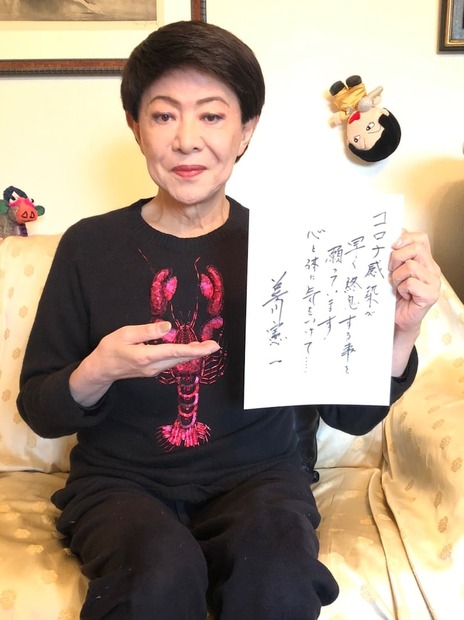 コロナ感染が
早く終息する事を
願っています
心と体に気をつけて……
美川憲一